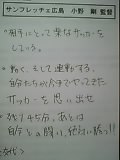 サンフレッチェ広島 小野 剛 監督
・相手にとって楽なサッカーを
している。
・動く、そして連動する。
自分たちが今までやってきた
サッカーを思い出せ
・残り45分、あとは
自分との闘い、絶対に勝つ!!